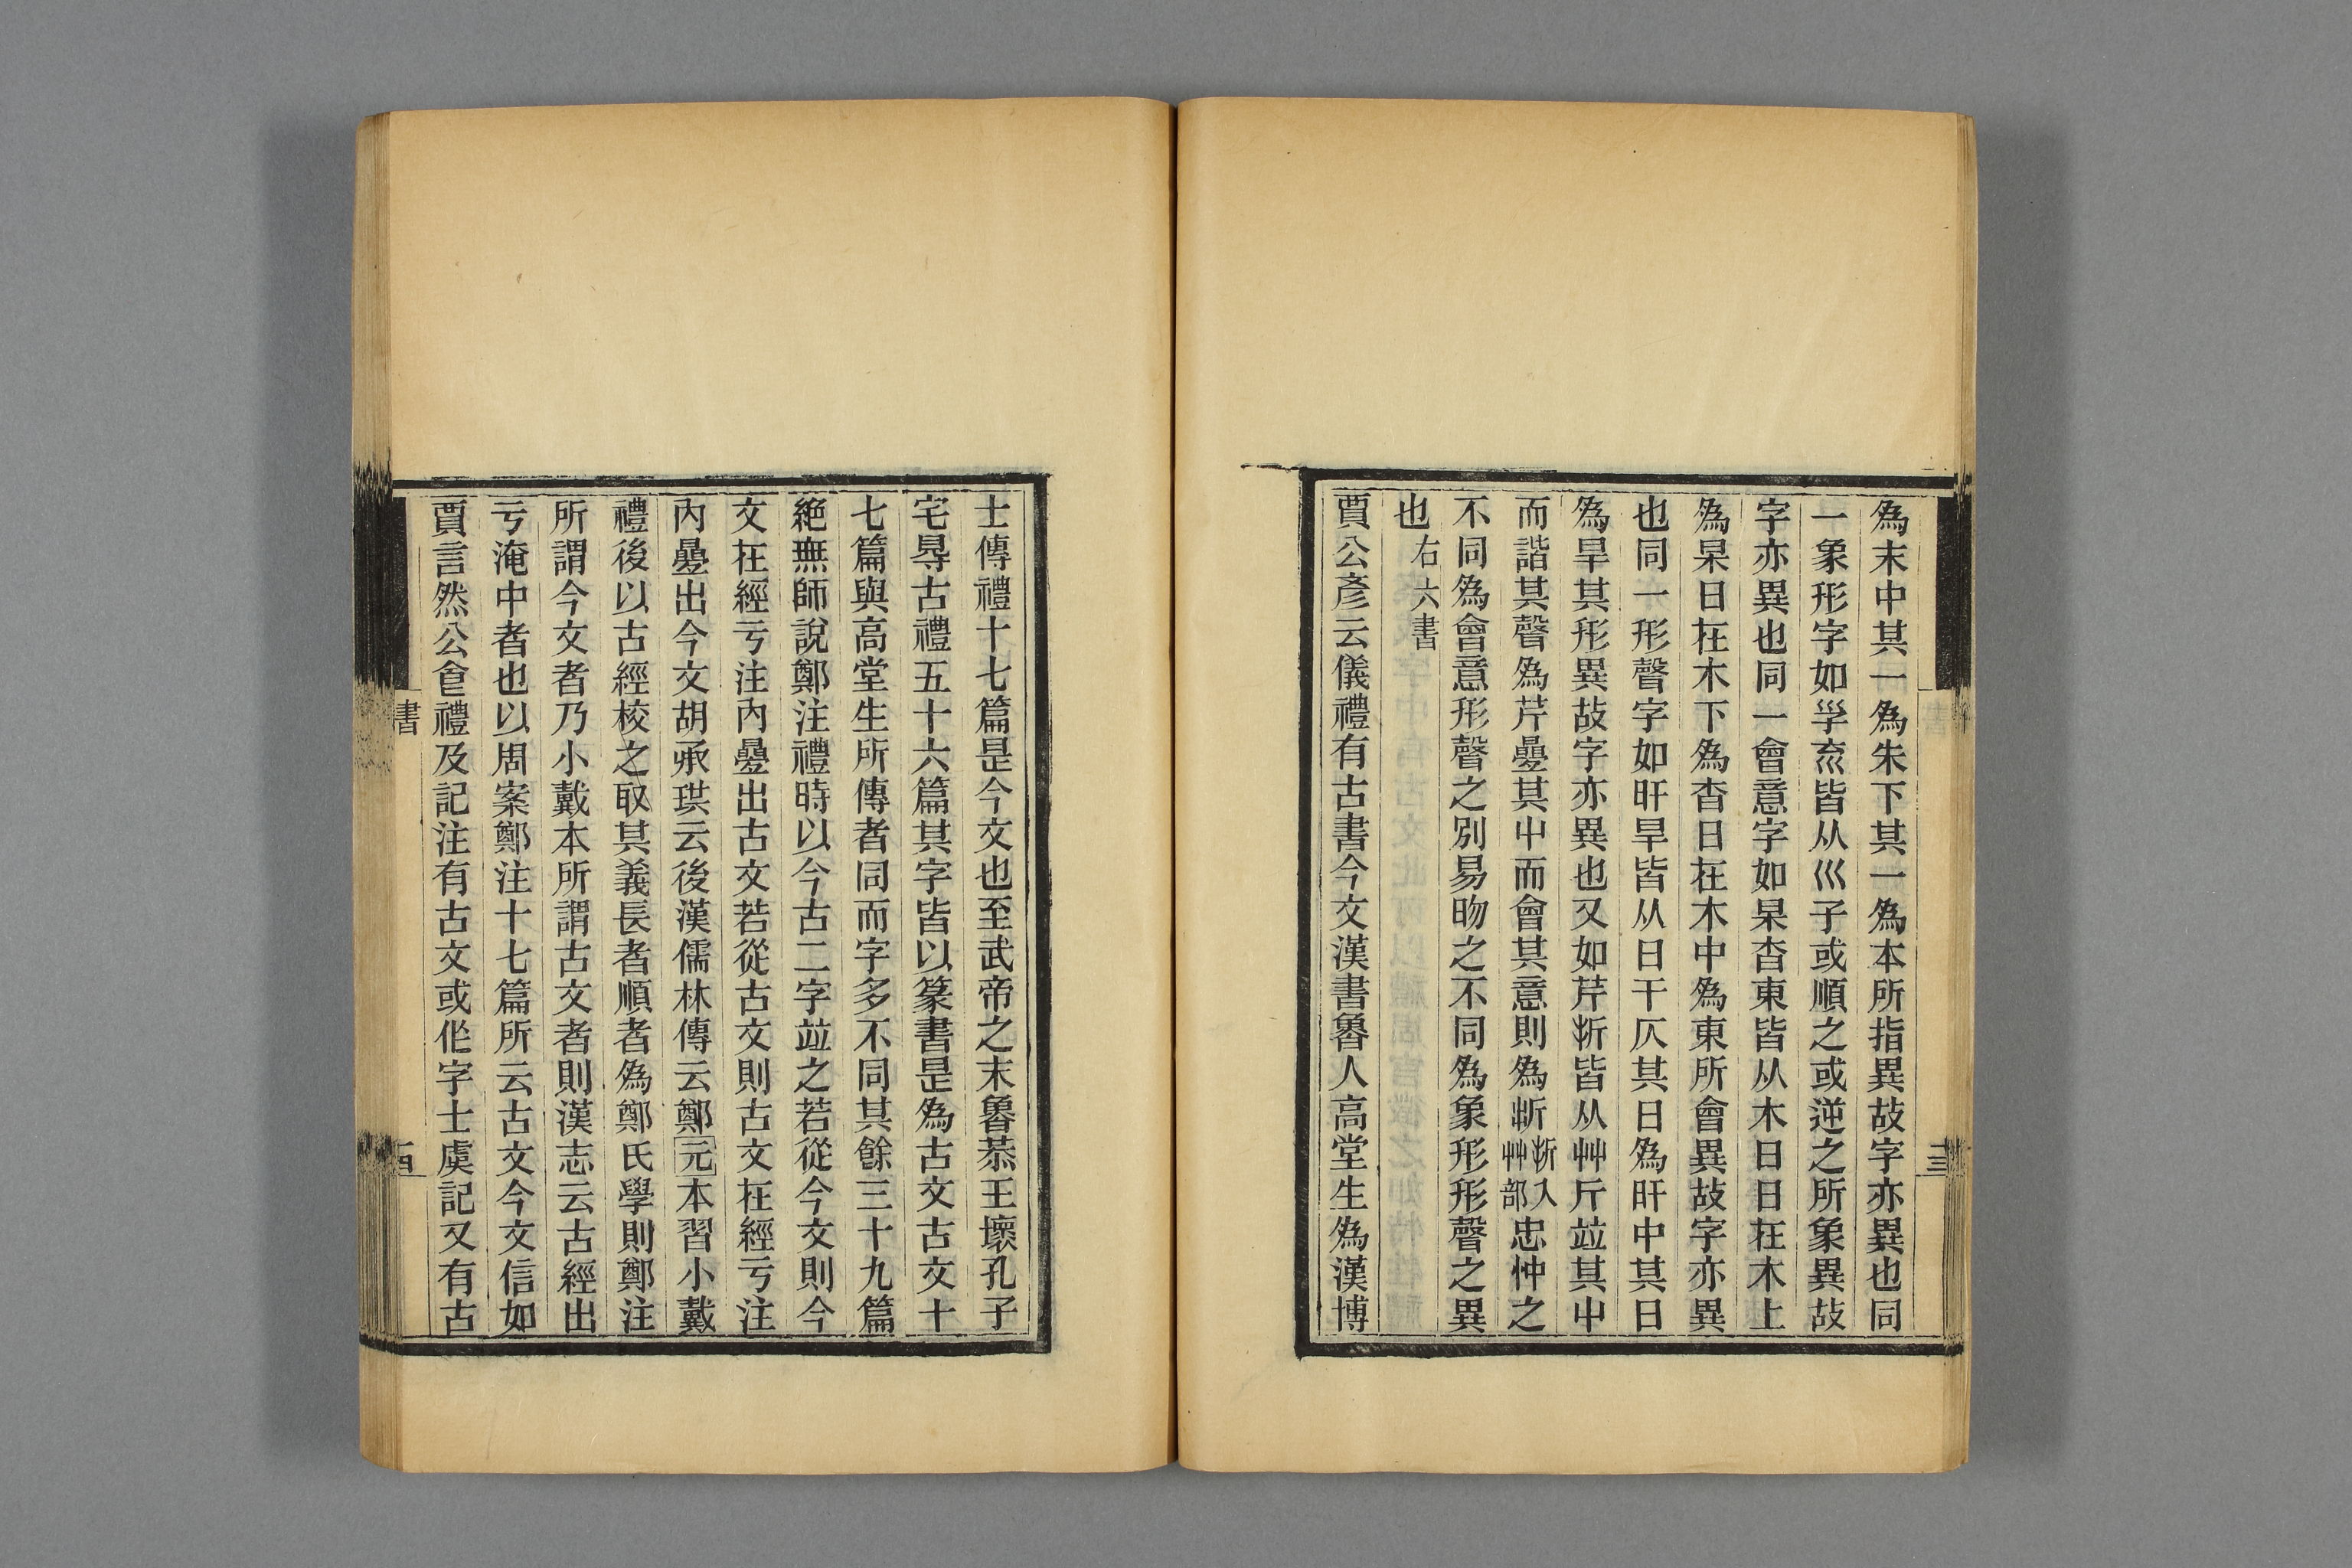 為末中其一為朱下其一為本所指異故字亦異也同
一象形字如𡥀㐬皆从巛子或順之或逆之所象異故
字亦異也同一會意字如杲杳東皆从木日日在木上
為杲日在木下為杳日在木中為東所會異故字亦異
也同一形聲字如旰旱皆从日干仄其日為旰中其日
為旱其形異故字亦異也又如芹㪿皆从艸斤竝其屮
而諧其聲為芹疊其屮而會其意則為㪿㪿入艸部忠忡之
不同為會意形聲之別易昒之不同為象形形聲之異
也右六書
賈公彥云儀禮有古書今文漢書魯人高堂生為漢博
十三
士傳禮十七篇是今文也至武帝之末魯恭王壞孔子
宅㝵古禮五十六篇其字皆以篆書是為古文古文十
七篇與高堂生所傳者同而字多不同其餘三十九篇
絕無師說鄭注禮時以今古二字竝之若從今文則今
文在經亏注內疊出古文若從古文則古文在經亏注
內疊出今文胡承珙云後漢儒林傳云鄭元本習小戴
禮後以古經校之取其義長者順者為鄭氏學則鄭注
所謂今文者乃小戴本所謂古文者則漢志云古經出
亏淹中者也以周案鄭注十七篇所云古文今文信如
賈言然公食禮及記注有古文或作字士虞記又有古
書